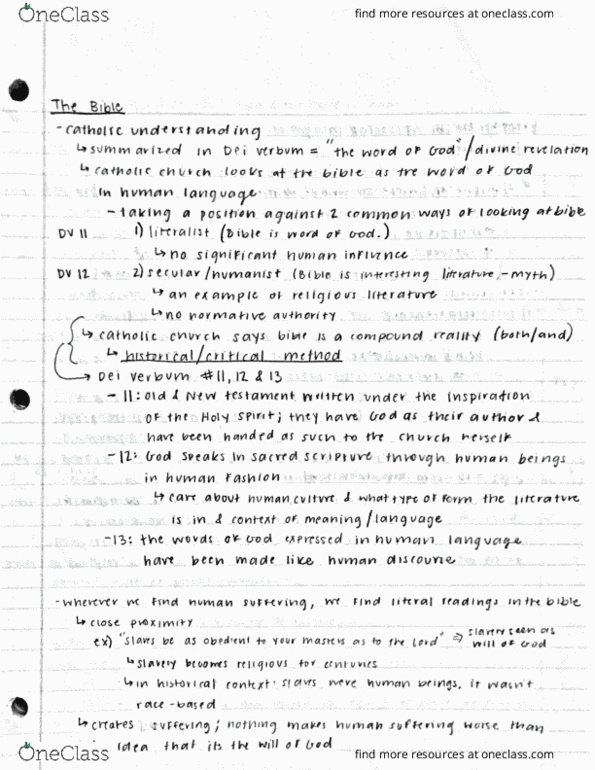 OneClass
find more resources at oneclass.com
The Bible
- catholic understanding
↳ summarized in Dei verbum = "the word of God" / divine revelation
↳ catholic church looks at the bible as the word of God
in human language
- taking a position against 2 common ways of looking at bible
DV 11 1) literalist (Bible is word of God.)
↳ no significant human influence
DV 12 2) secular/humanist (Bible is interesting literature - myth)
↳ an example of religious literature
↳ no normative authority
↳ catholic church says bible is a compound reality (both/and)
↳ historical/critical method
→ Dei verbum #11, 12 & 13
- 11: Old & New testament written under the inspiration
of the Holy Spirit; they have God as their author &
have been handed as such to the church herself
- 12: God speaks in sacred scripture through human beings
in human fashion
↳ care about human culture & what type of form the literature
is in & context of meaning/language
- 13: the words of God expressed in human language
have been made like human discourse
- wherever we find human suffering, we find literal readings in the bible
↳ close proximity
ex) "slaves be as obedient to your masters as to the Lord" ⇒ slavery seen as
will of God
↳ slavery becomes religious for centuries
↳ in historical context: slaves were human beings, it wasn't
race-based
↳ creates suffering; nothing makes human suffering worse than
idea that its the will of God
OneClass
find more resources at oneclass.com